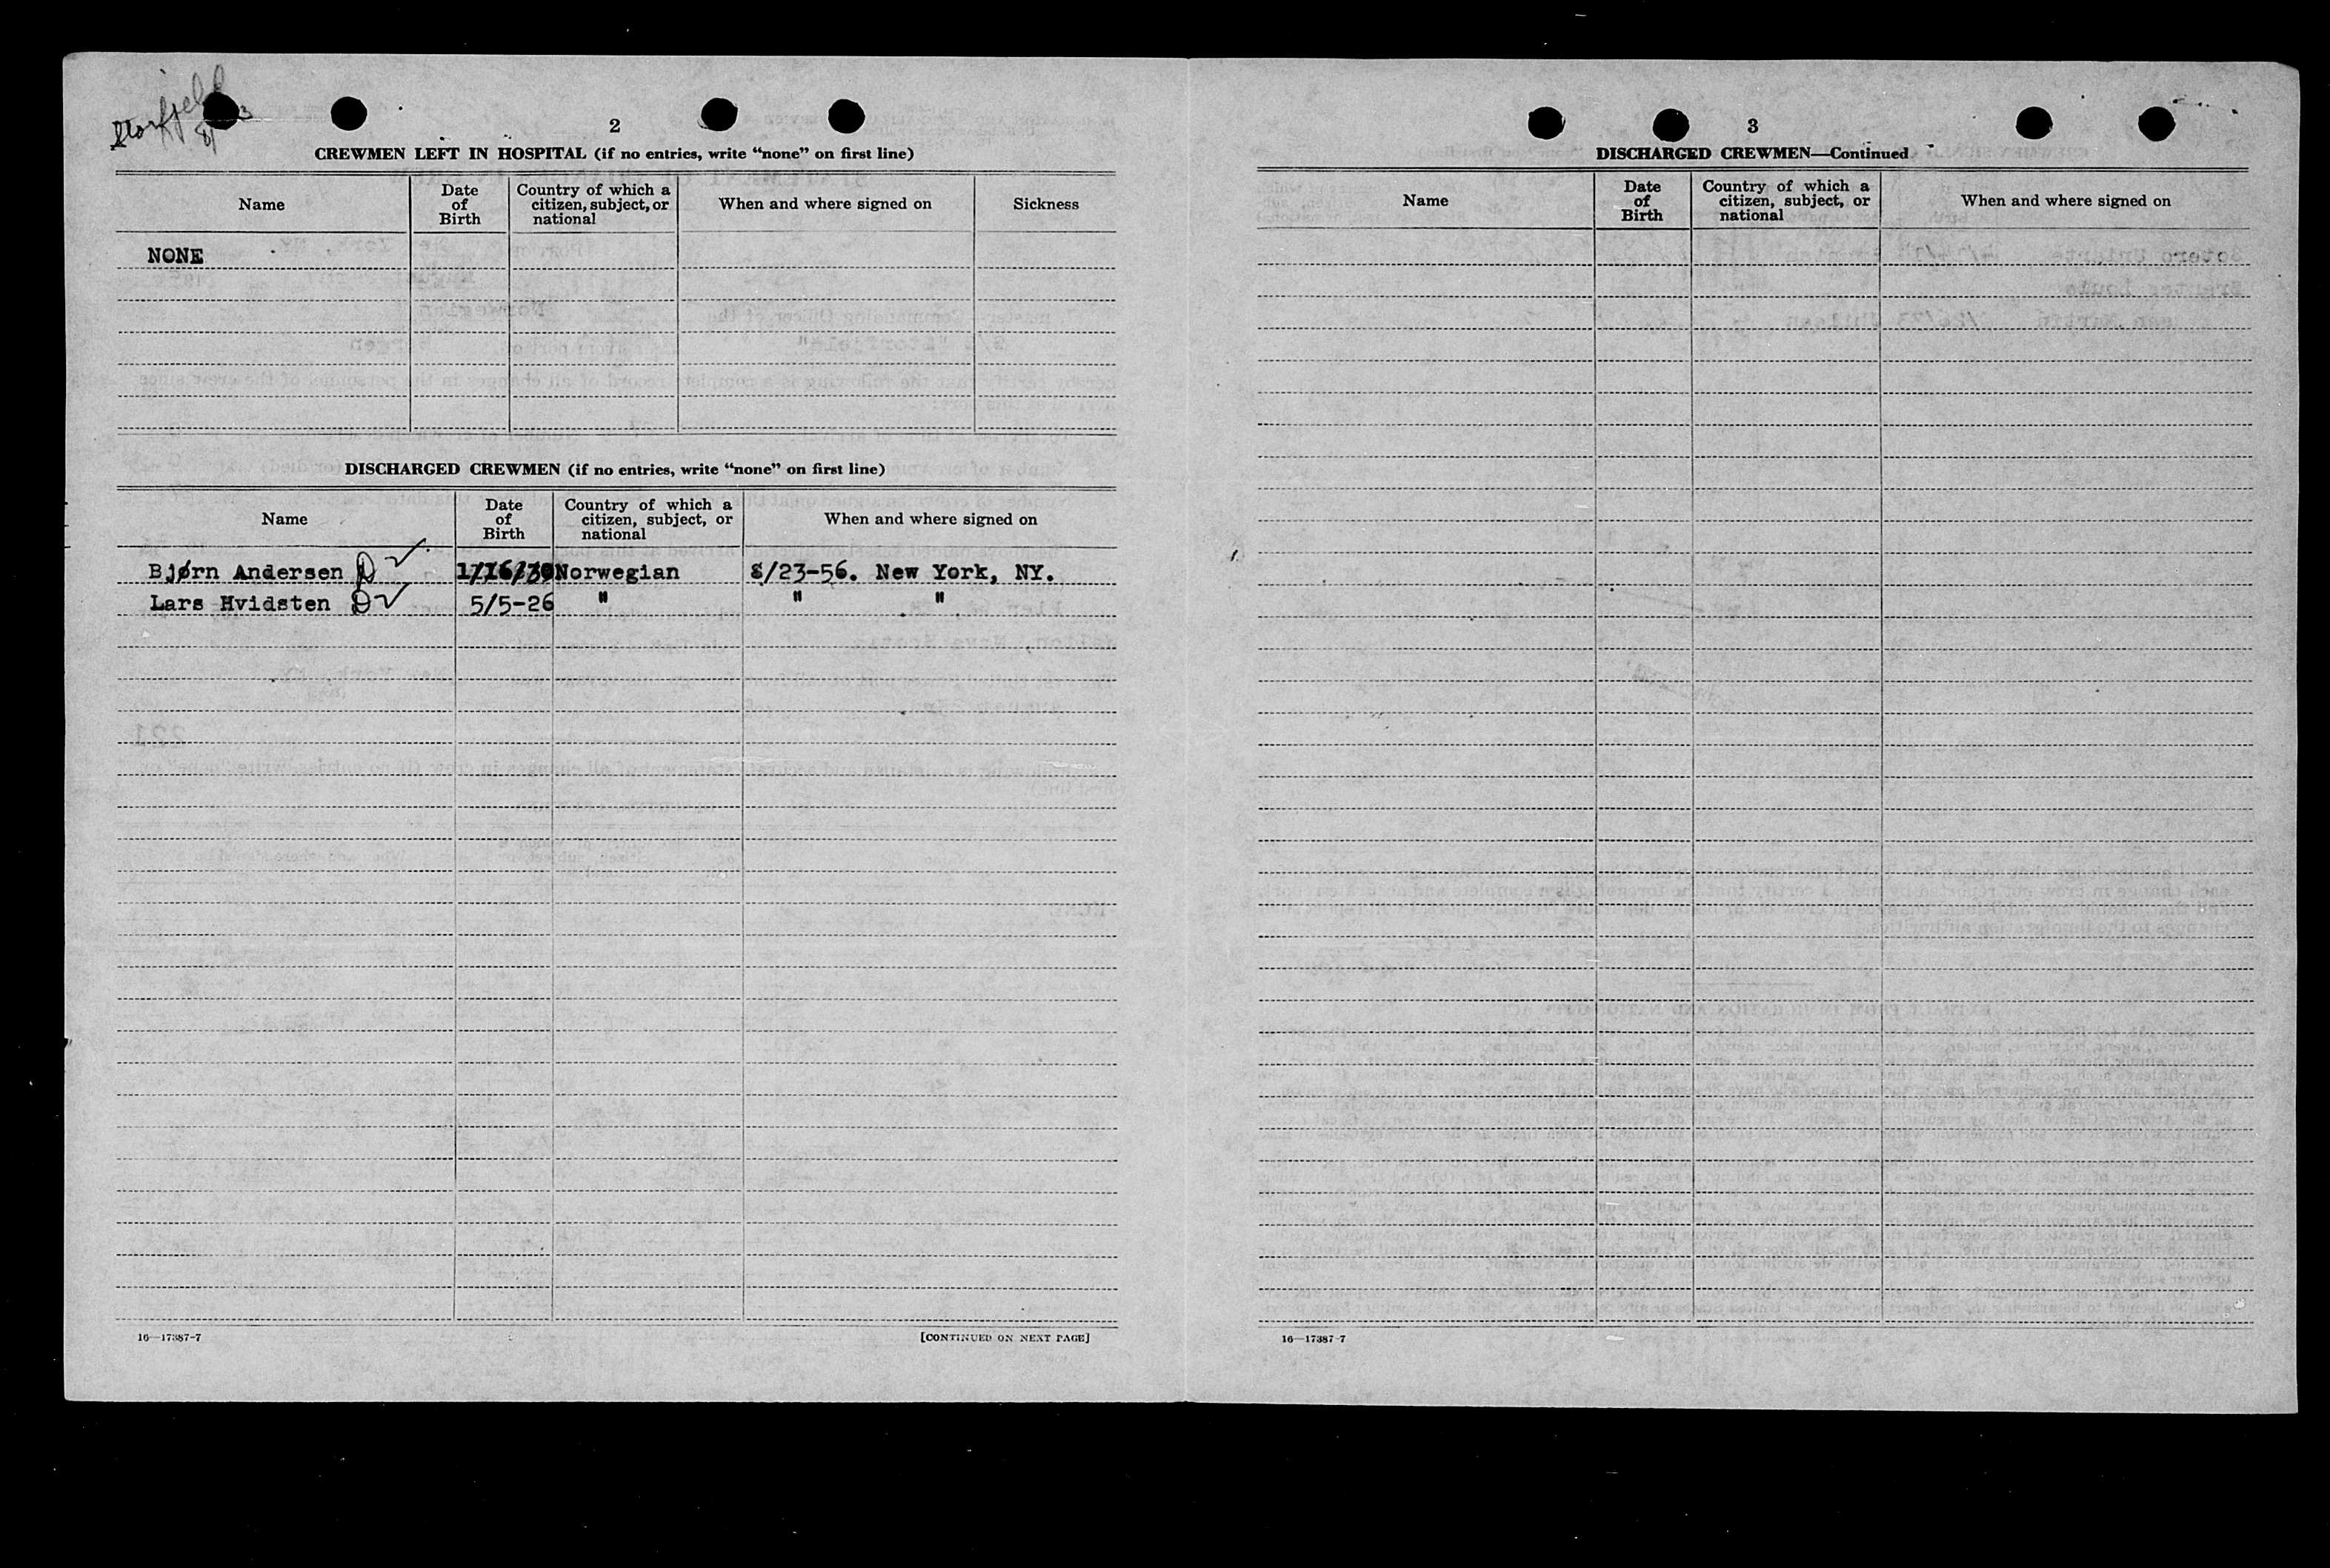 Storfjeld
2
CREWMEN LEFT IN HOSPITAL (if no entries, write “none” on first line)
Name
Date of Birth
Country of which a citizen, subject, or national
When and where signed on
Sickness
NONE
DISCHARGED CREWMEN (if no entries, write “none” on first line)
Name
Date of Birth
Country of which a citizen, subject, or national
When and where signed on
Bjørn Andersen D Norwegian 8/23-56. New York, NY.
Lars Hvidsten D 5/5-26 " " "
16—17387-7
[CONTINUED ON NEXT PAGE]
3
DISCHARGED CREWMEN—Continued
Name
Date of Birth
Country of which a citizen, subject, or national
When and where signed on
16—17387-7